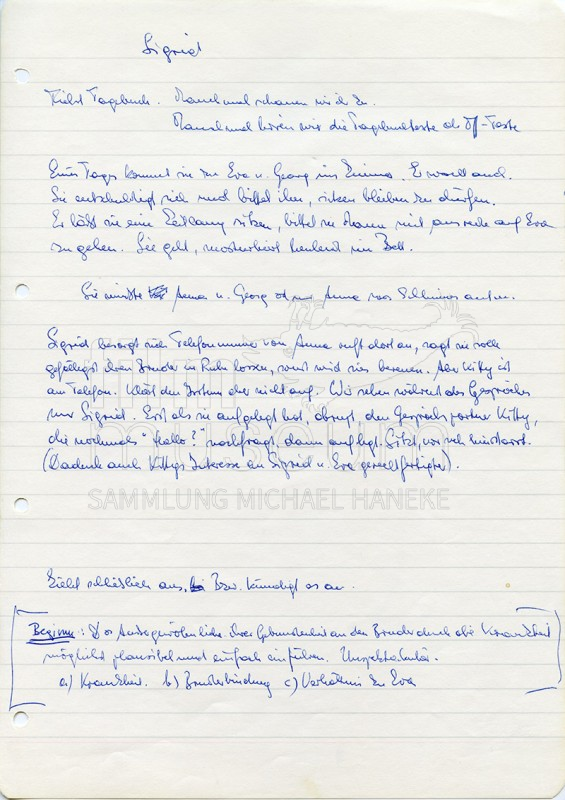 Sigrid
Führt Tagebuch. Manchmal schauen wir ihr zu.
Manchmal hören wir die Tagebuchtexte als Off-Texte
Eines Tages kommt sie zu Eva u. Georg ins Zimmer. Er wacht auf.
Sie entschuldigt sich und bittet ihn, sitzen bleiben zu dürfen.
Er läßt sie eine Zeitlang sitzen, bittet sie dann mit auf Eva
zu gehen. Sie geht, masturbiert heulend im Bett.
Sie Anna u. Georg Anna
Sigrid besorgt sich Telefonnummer von Anna ruft dort an, sagt sie solle
gefälligst ihren Bruder in Ruhe lassen, sonst wird sie's bereuen. Aber Kitty ist
am Telefon. Klärt den Irrtum aber nicht auf. Wir sehen während des Gespräches
nur Sigrid. Erst als sie aufgelegt hat, den Gesprächspartner Kitty,
die nochmals "Hallo?" nachfragt, dann auflegt. Sitzt, vor sich hinstarrt.
(Dadurch auch Kittys Interesse an Sigrid u. Eva gerechtfertigter).
filmmuseum
SAMMLUNG MICHAEL HANEKE
Zieht schließlich aus, Bzw. kündigt es an.
Beginn: Das Außergewöhnliche ihrer Gebundenheit an den Bruder durch die Krankheit
möglichst plausibel und einfach einführen. Unspektakulär.
a) Krankheit. b) Bruderbindung c) Verhältnis zu Eva